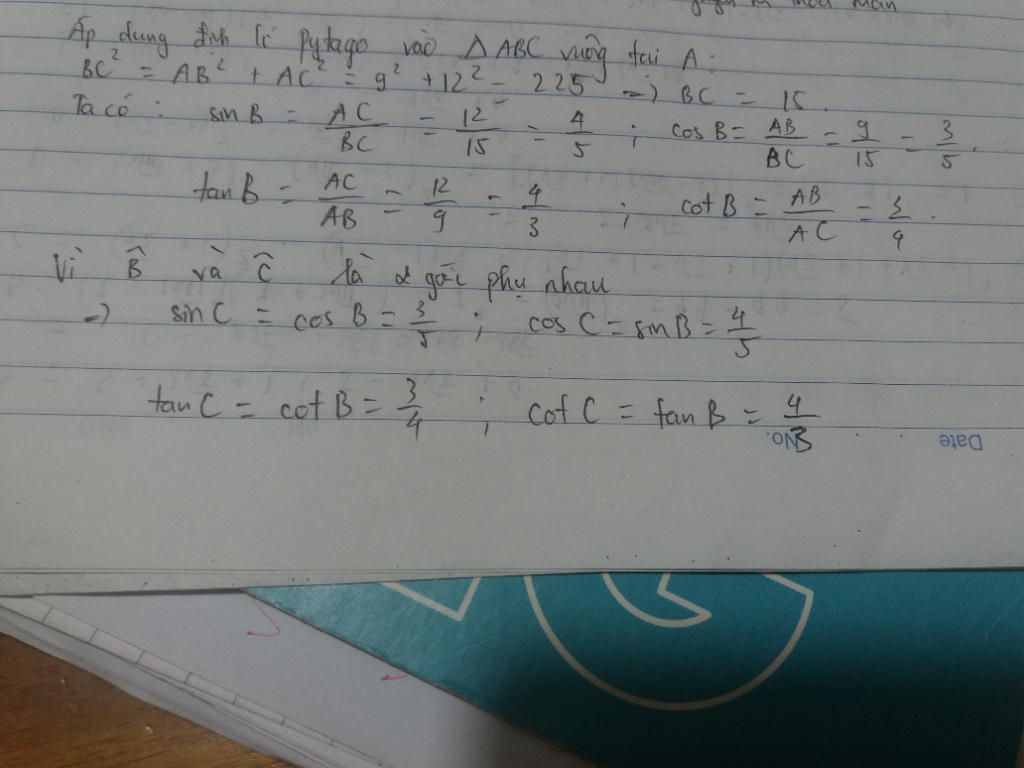 Áp dụng định lí Pytago vào △ABC vuông tại A:
BC² = AB² + AC² = 9² + 12² = 225 => BC = 15.
Ta có: sin B = AC/BC = 12/15 = 4/5 ; cos B = AB/BC = 9/15 = 3/5.
tan B = AC/AB = 12/9 = 4/3 ; cot B = AB/AC = 3/4.
Vì B̂ và Ĉ là 2 góc phụ nhau
=> sin C = cos B = 3/5 ; cos C = sin B = 4/5
tan C = cot B = 3/4 ; cot C = tan B = 4/3
No.
Date